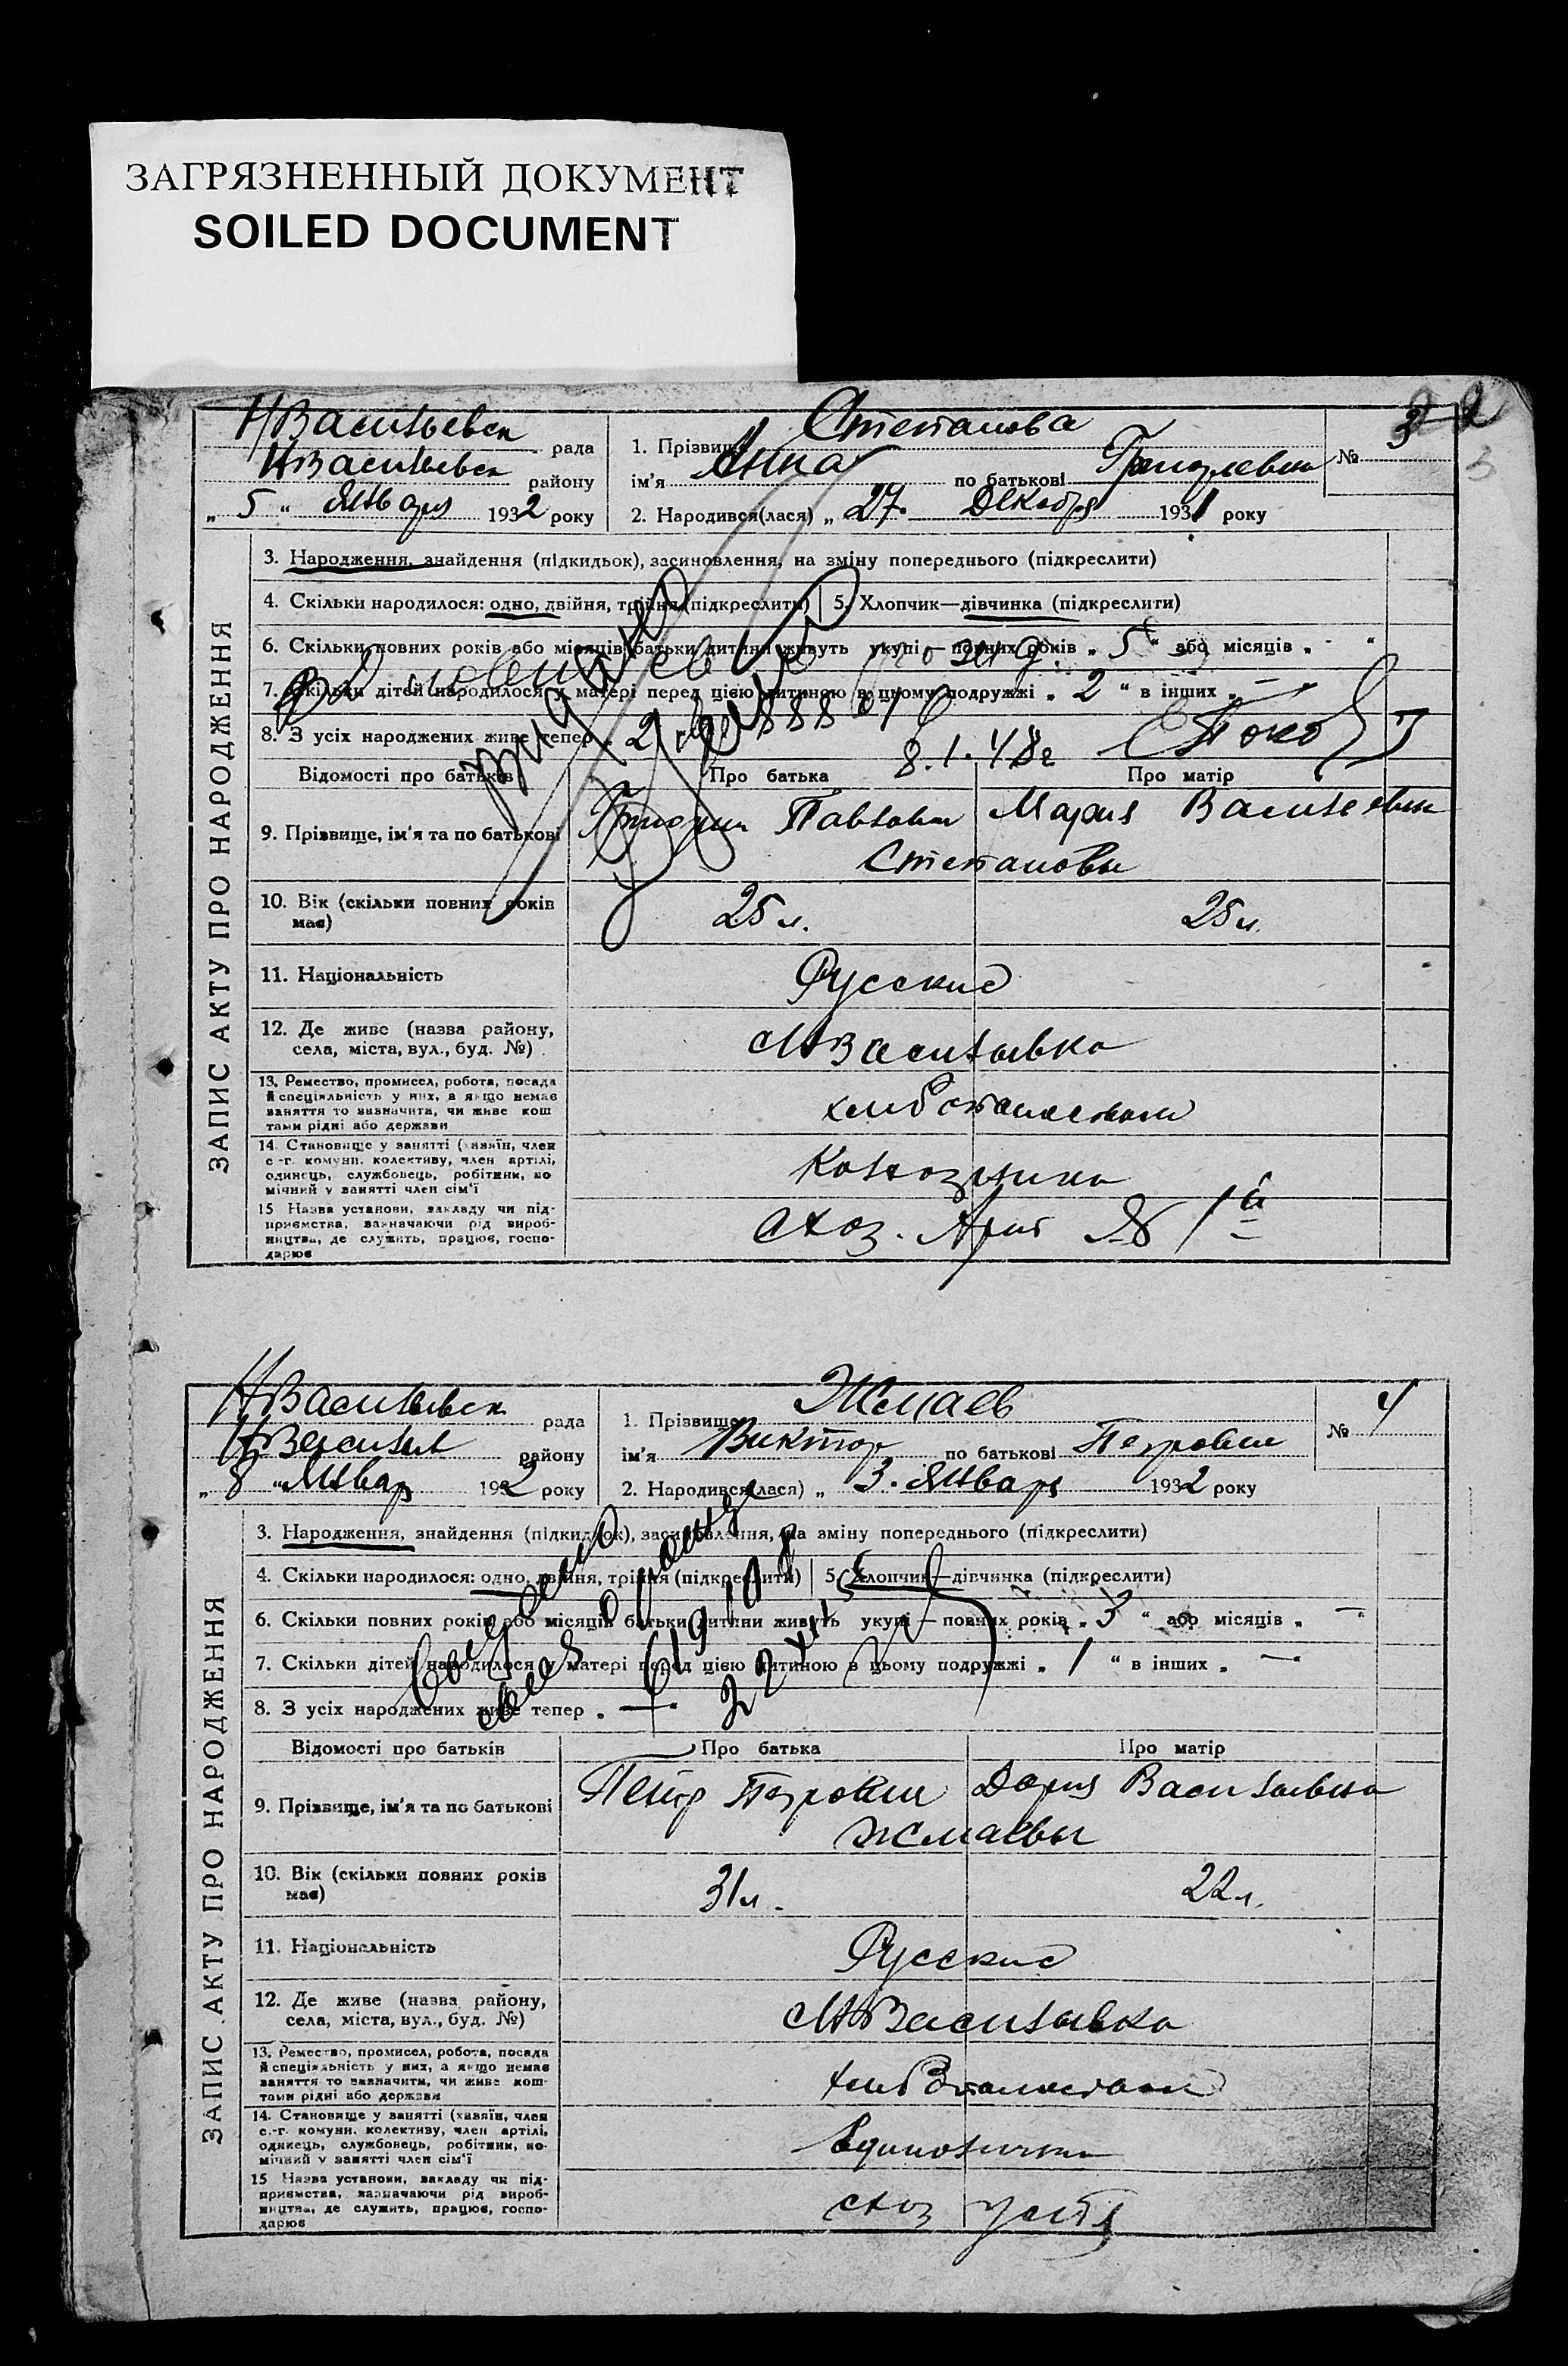 ЗАГРЯЗНЕННЫЙ ДОКУМЕНТ
SOILED DOCUMENT
2
3
ЗАПИС АКТУ ПРО НАРОДЖЕННЯ
НВасильевск рада
НВасильевск району
„ 5 “ Января 1932 року
1. Прізвище Степанова
ім'я Анна по батькові
№ 3
2. Народився(лася) „ 27. Декабря 1931 року
3. Народження, знайдення (підкидьок), засиновлення, на зміну попереднього (підкреслити)
4. Скільки народилося: одно, двійня, трійня (підкреслити) 5. Хлопчик—дівчинка (підкреслити)
6. Скільки повних років або місяців батьки дитини живуть укупі — повних років „ 5 “ або місяців „ - “
7. Скільки дітей народилося у матері перед цією дитиною в цьому подружжі „ 2 “ в інших „ —
8. З усіх народжених живе тепер „ 2
8.1.48г
Відомості про батьків Про батька Про матір
9. Прізвище, ім'я та по батькові
Мария Васильевна
Степановы
10. Вік (скільки повних років має) 25л. 25л.
11. Національність Русские
12. Де живе (назва району, села, міста, вул., буд. №) НВасильевка
13. Ремество, промисел, робота, посада й спеціяльність у них, а якщо немає заняття то зазначити, чи живе коштами рідні або держави
14. Становище у занятті (хазяїн, член с.-г. комуни, колективу, член артілі, одинець, службовець, робітник, помічний у занятті член сім'ї
Колхозники
15 Назва установи, закладу чи підприємства, зазначаючи рід виробництва, де служить, працює, господарює
схоз. Арт № 1й
ЗАПИС АКТУ ПРО НАРОДЖЕННЯ
НВасильевск рада
НВасильев району
„ 8 “ Январ 1932 року
1. Прізвище Жмаев
ім'я Виктор по батькові Петрович
№ 4
2. Народився(лася) „ 3. Января 1932 року
3. Народження, знайдення (підкидьок), засиновлення, на зміну попереднього (підкреслити)
4. Скільки народилося: одно, двійня, трійня (підкреслити) 5. Хлопчик—дівчинка (підкреслити)
6. Скільки повних років або місяців батьки дитини живуть укупі — повних років „ 3 “ або місяців „ — “
7. Скільки дітей народилося у матері перед цією дитиною в цьому подружжі „ 1 “ в інших „ — “
8. З усіх народжених живе тепер „
Відомості про батьків Про батька Про матір
9. Прізвище, ім'я та по батькові
Петр Петрович Дария Васильевна
Жмаевы
10. Вік (скільки повних років має) 31л. 22л.
11. Національність Русские
12. Де живе (назва району, села, міста, вул., буд. №) НВасильевка
13. Ремество, промисел, робота, посада й спеціяльність у них, а якщо немає заняття то зазначити, чи живе коштами рідні або держави
14. Становище у занятті (хазяїн, член с.-г. комуни, колективу, член артілі, одинець, службовець, робітник, помічний у занятті член сім'ї
Единоличники
15 Назва установи, закладу чи підприємства, зазначаючи рід виробництва, де служить, працює, господарює
схоз